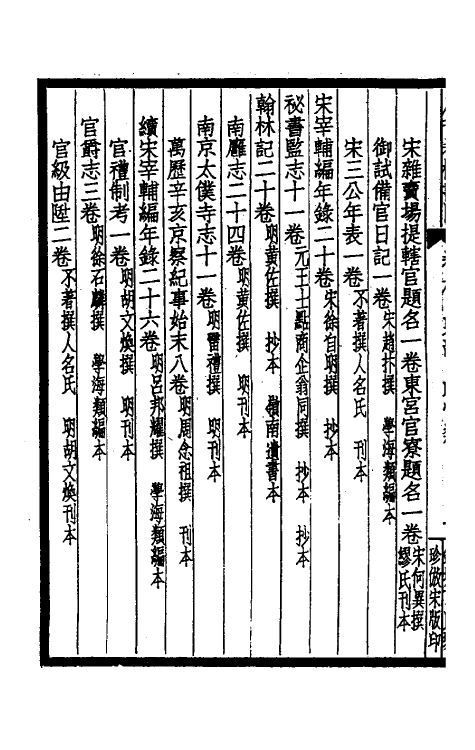 宋雜賣場提轄官題名一卷東宮官寮題名一卷 宋何異撰 繆氏刊本
御試備官日記一卷 宋趙抃撰 學海類編本
宋三公年表一卷 不著撰人名氏 刊本
宋宰輔編年錄二十卷 宋徐自明撰 抄本
祕書監志十一卷 元王士點商企翁同撰 抄本 抄本
翰林記二十卷 明黃佐撰 抄本 嶺南遺書本
南廱志二十四卷 明黃佐撰 明刊本
南京太僕寺志十一卷 明雷禮撰 明刊本
萬歷辛亥京察紀事始末八卷 明周念祖撰 刊本
續宋宰輔編年錄二十六卷 明呂邦耀撰 學海類編本
官禮制考一卷 明胡文煥撰 明刊本
官爵志三卷 明徐石麟撰 學海類編本
官級由陞二卷 不著撰人名氏 明胡文煥刊本
珍倣宋版印